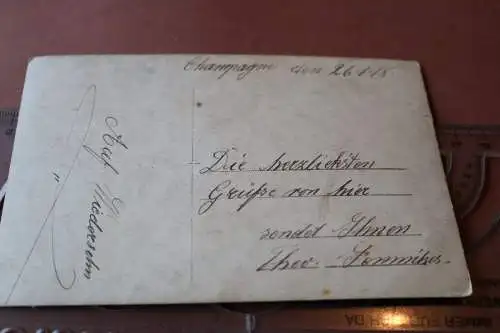 Champagne den 26.1.18
Die herzlichsten
Grüße von hier
sendet Ihnen
Theo.
Auf Wiedersehn